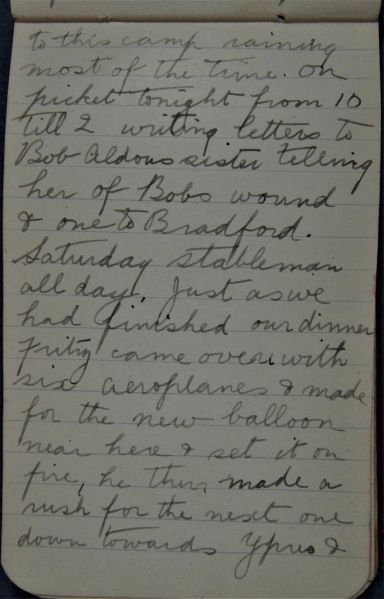 to this camp raining
most of the time. On
picket tonight from 10
till 2 writing letters to
Bob Aldous sister telling
her of Bobs wound
& one to Bradford.
Saturday stableman
all day. Just as we
had finished our dinner
Fritz came over with
six aeroplanes & made
for the new balloon
near here & set it on
fire, he then made a
rush for the next one
down towards Ypres &